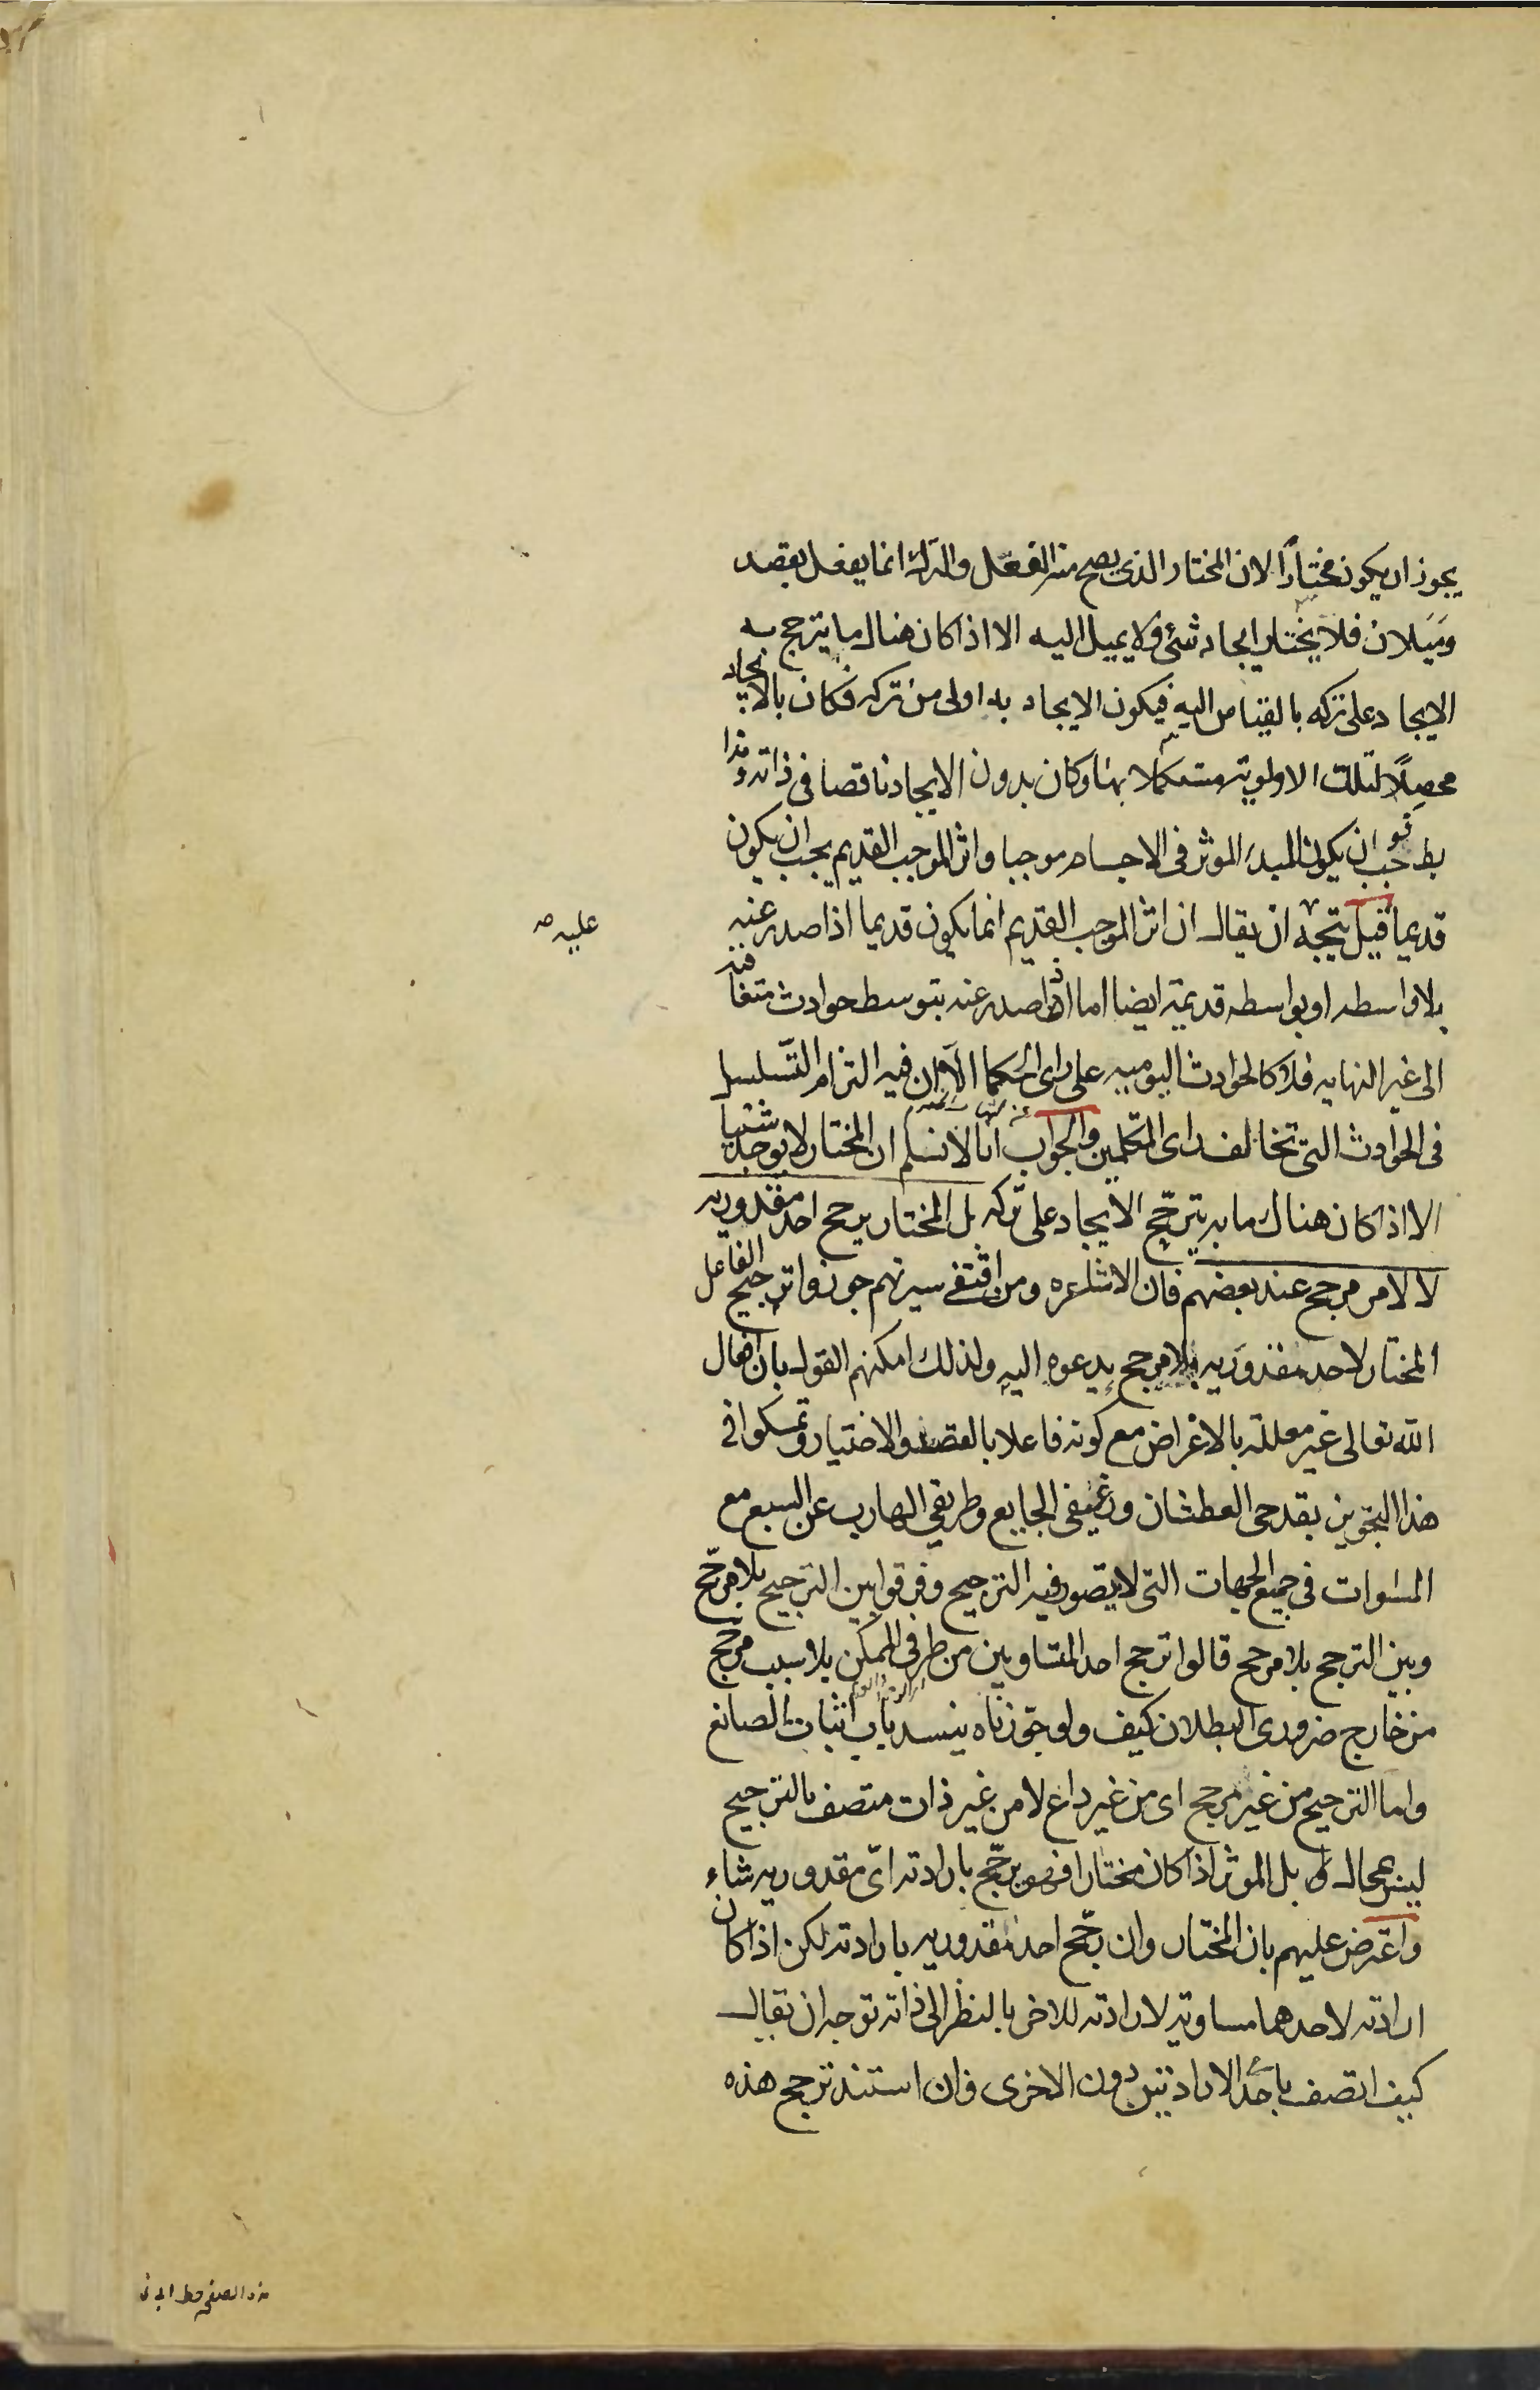 يجوز ان يكون مختاراً لان المختار الذى يصح منه الفعل والترك انما يفعل بقصد
وميلان فلا يختار ايجاد شئ ولا يميل اليه الا اذا كان هناك ما يترجح به
الايجاد على تركه بالقياس اليه فيكون الايجاد به اولى من تركه فكان بالايجاد
محصلاً لتلك الاولوية مستكملا بها وكان بدون الايجاد ناقصا فى ذاته وهذا
بط فوجب ان يكون المبدء الموثر فى الاجسام موجبا واثر الموجب القديم يجب ان يكون
قديما قيل يتجه ان يقال ان اثر الموجب القديم انما يكون قديما اذا صدر عنه
عليه صه
بلا واسطه او بواسطه قديمة ايضا اما اذا صدر عنه بتوسط حوادث متعاقبه
الى غير النهايه فلا كالحوادث اليوميه على راى الحكما الا ان فيه التزام التسلسل
فى الحوادث التى تخالف راى المتكلمين والجواب انا لا نسلم ان المختار لا يوجد شئيا
الا اذا كان هناك ما به يترجّح الايجاد على تركه بل المختار يرجح احد مقدوريه
لا لامر مرجح عند بعضهم فان الاشاعره ومن اقتفى سيرتهم جوزوا ترجيح الفاعل
المختار لاحد مقدوريه بلا مرجح يدعوه اليه ولذلك امكنهم القول بان افعال
الله تعالى غير معللة بالاغراض مع كونه فاعلا بالقصد والاختيار وتمسكوا فى
هذا التجويز بقدحى العطشان ورغيفى الجايع وطريقي الهارب عن السبع مع
المساوات فى جميع الجهات التى لا يتصور فيه الترجيح وفرقوا بين الترجيح بلا مرجّح
وبين الترجح بلا مرجح قالوا ترجح احد المتساويين من طرفى الممكن بلا سبب مرجّح
من خارج ضرورى البطلان كيف ولو جوّزناه ينسد باب اثبات الصانع
واما الترجيح من غير مرجح اى من غير داع لا من غير ذات متصف بالترجيح
ليس بمحال بل الموثر اذا كان مختارا فهو يرجّح بارادته اىّ مقدوريه شاء
واعترض عليهم بان المختار وان رجّح احد مقدوريه بارادته لكن اذا كان
ارادته لاحدهما مساوية لارادته للاخر بالنظر الى ذاته توجه ان يقال
كيف اتصف باحد الارادتين دون الاخرى فان استند ترجح هذه